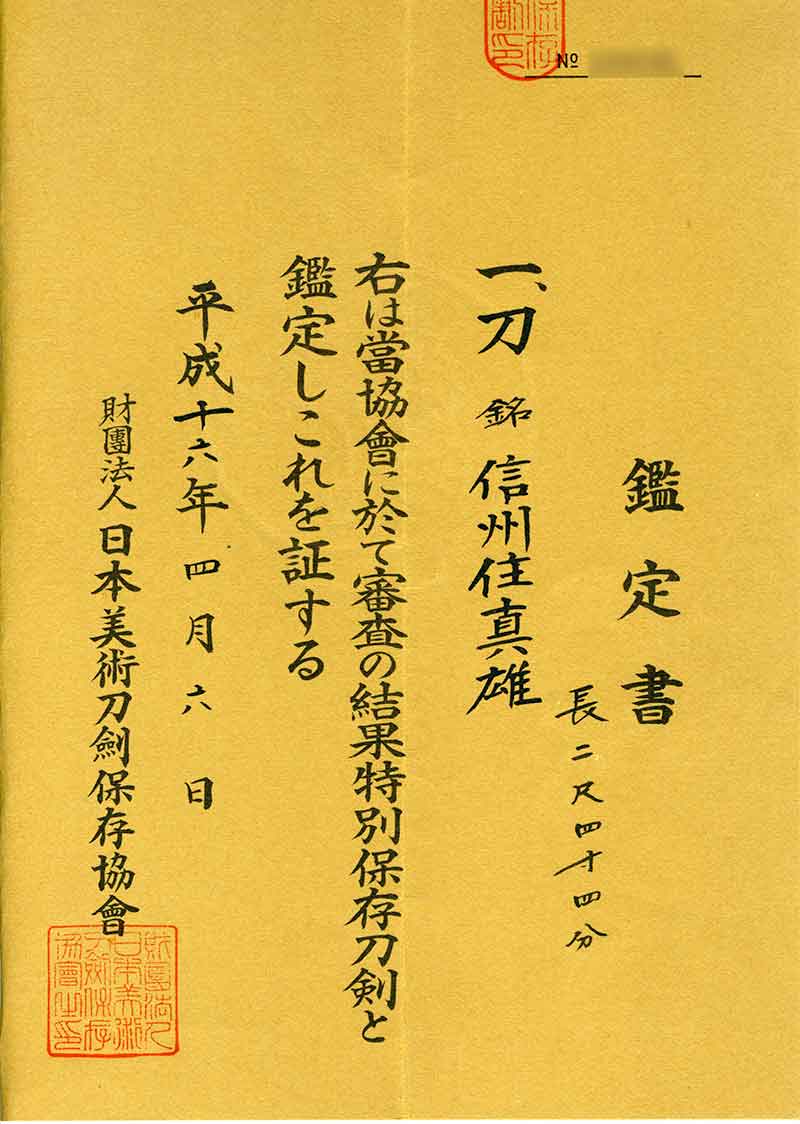 No
鑑定書
長二尺四寸四分
一、刀 銘 信州住真雄
右は當協會に於て審査の結果特別保存刀剣と
鑑定しこれを証する
平成十六年四月六日
財團法人 日本美術刀劍保存協會